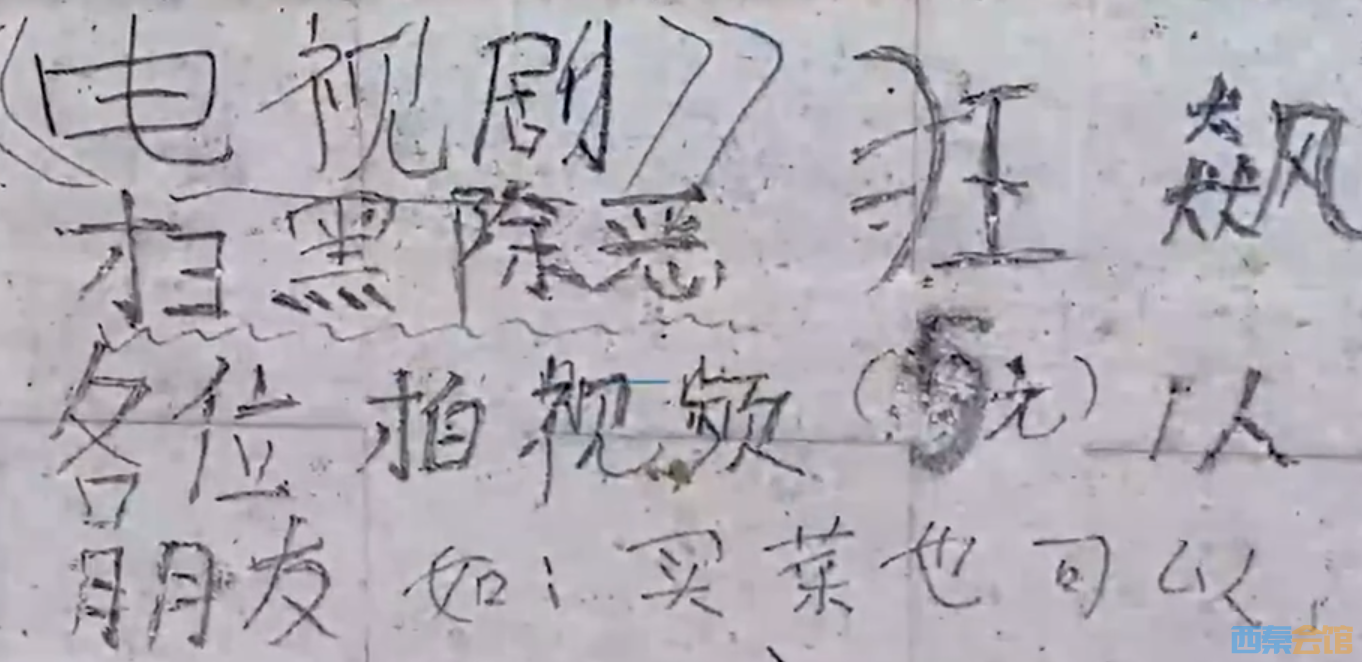 《电视剧》 狂 飙
扫黑除恶
各位 拍视频（5元）1人
朋友 如：买菜也可以，
西秦会馆